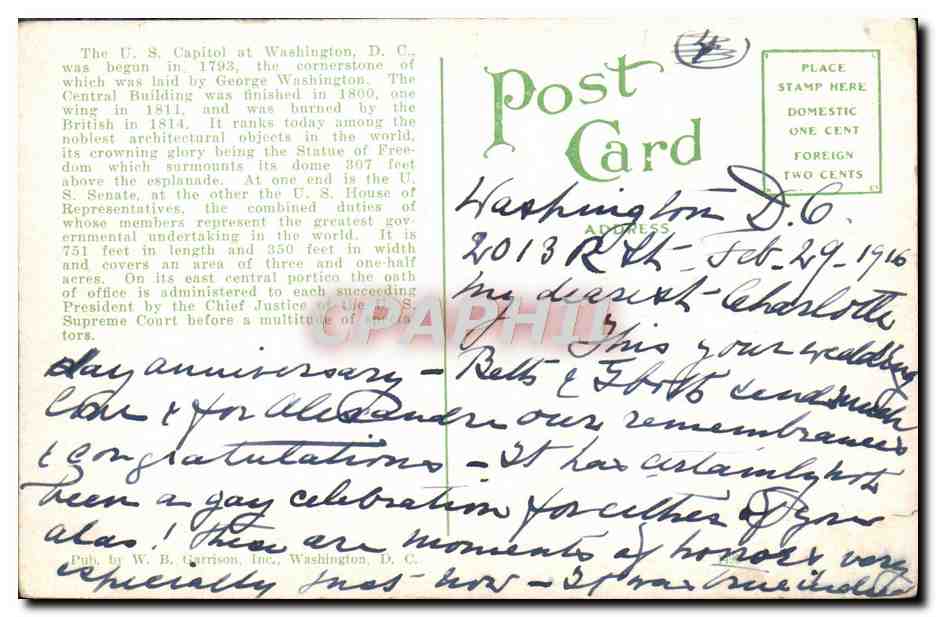 The U. S. Capitol at Washington, D. C.,
was begun in 1793, the cornerstone of
which was laid by George Washington. The
Central Building was finished in 1800, one
wing in 1811, and was burned by the
British in 1814. It ranks today among the
noblest architectural objects in the world,
its crowning glory being the Statue of Free-
dom which surmounts its dome 307 feet
above the esplanade. At one end is the U.
S. Senate, at the other the U. S. House of
Representatives, the combined duties of
whose members represent the greatest gov-
ernmental undertaking in the world. It is
751 feet in length and 350 feet in width
and covers an area of three and one-half
acres. On its east central portico the oath
of office is administered to each succeeding
President by the Chief Justice of the U. S.
Supreme Court before a multitude of specta-
tors.
Post
Card
PLACE
STAMP HERE
DOMESTIC
ONE CENT
FOREIGN
TWO CENTS
ADDRESS
Washington D.C.
2013 R St - Feb. 29. 1916
My dearest Charlotte
This your wedding
day anniversary - Betts & send much
love & for Alexandre our remembrances
& congratulations - It has certainly not
been a gay celebration for either of you
alas! these are moments of horror & very
especially just now - It was true indeed
Pub. by W. B. Garrison, Inc., Washington, D. C.
CPAPHIL